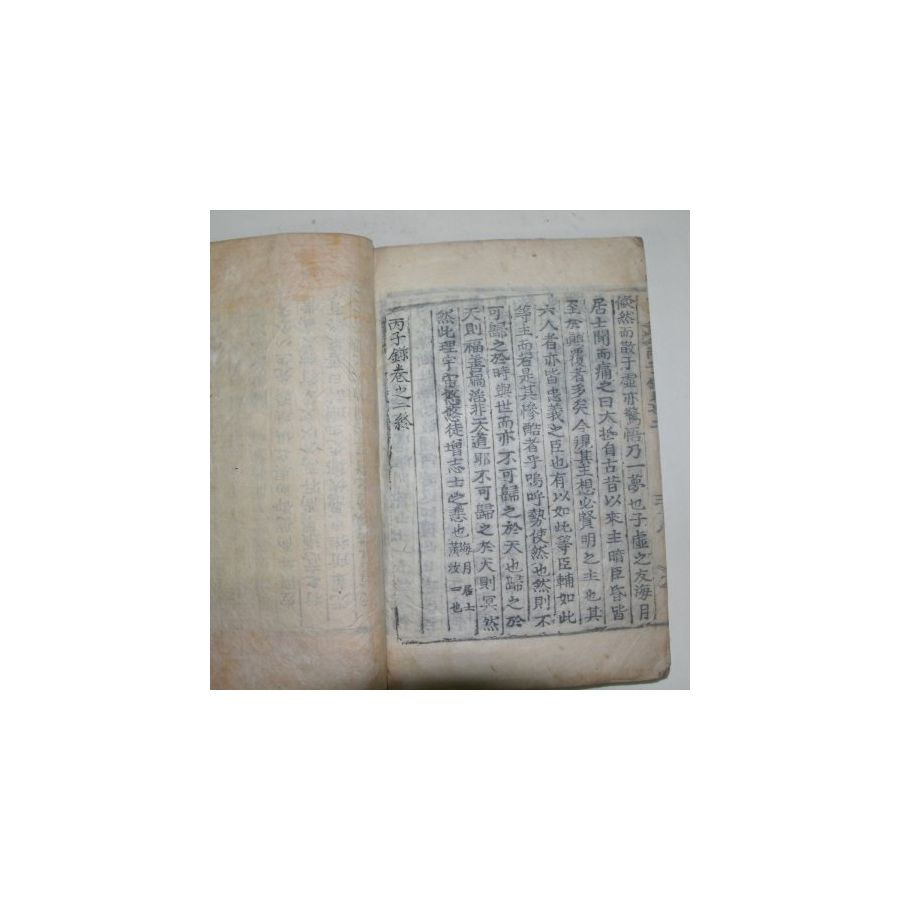 倏然而散子虛亦驚悟乃一夢也子虛之友海月
居士聞而痛之曰大抵自古昔以來主暗臣昏皆
至於顚覆者多矣今觀其主想必賢明之主也其
六人者亦皆忠義之臣也有以如此等臣輔如此
等主而若是其慘酷者乎嗚呼勢使然也然則不
可歸之於時與世而亦不可歸之於天也歸之於
天則福善禍淫非天道耶不可歸之於天則冥然
然此理宇宙悠悠徒增志士之悲也海月居士
丙子錄卷之二終